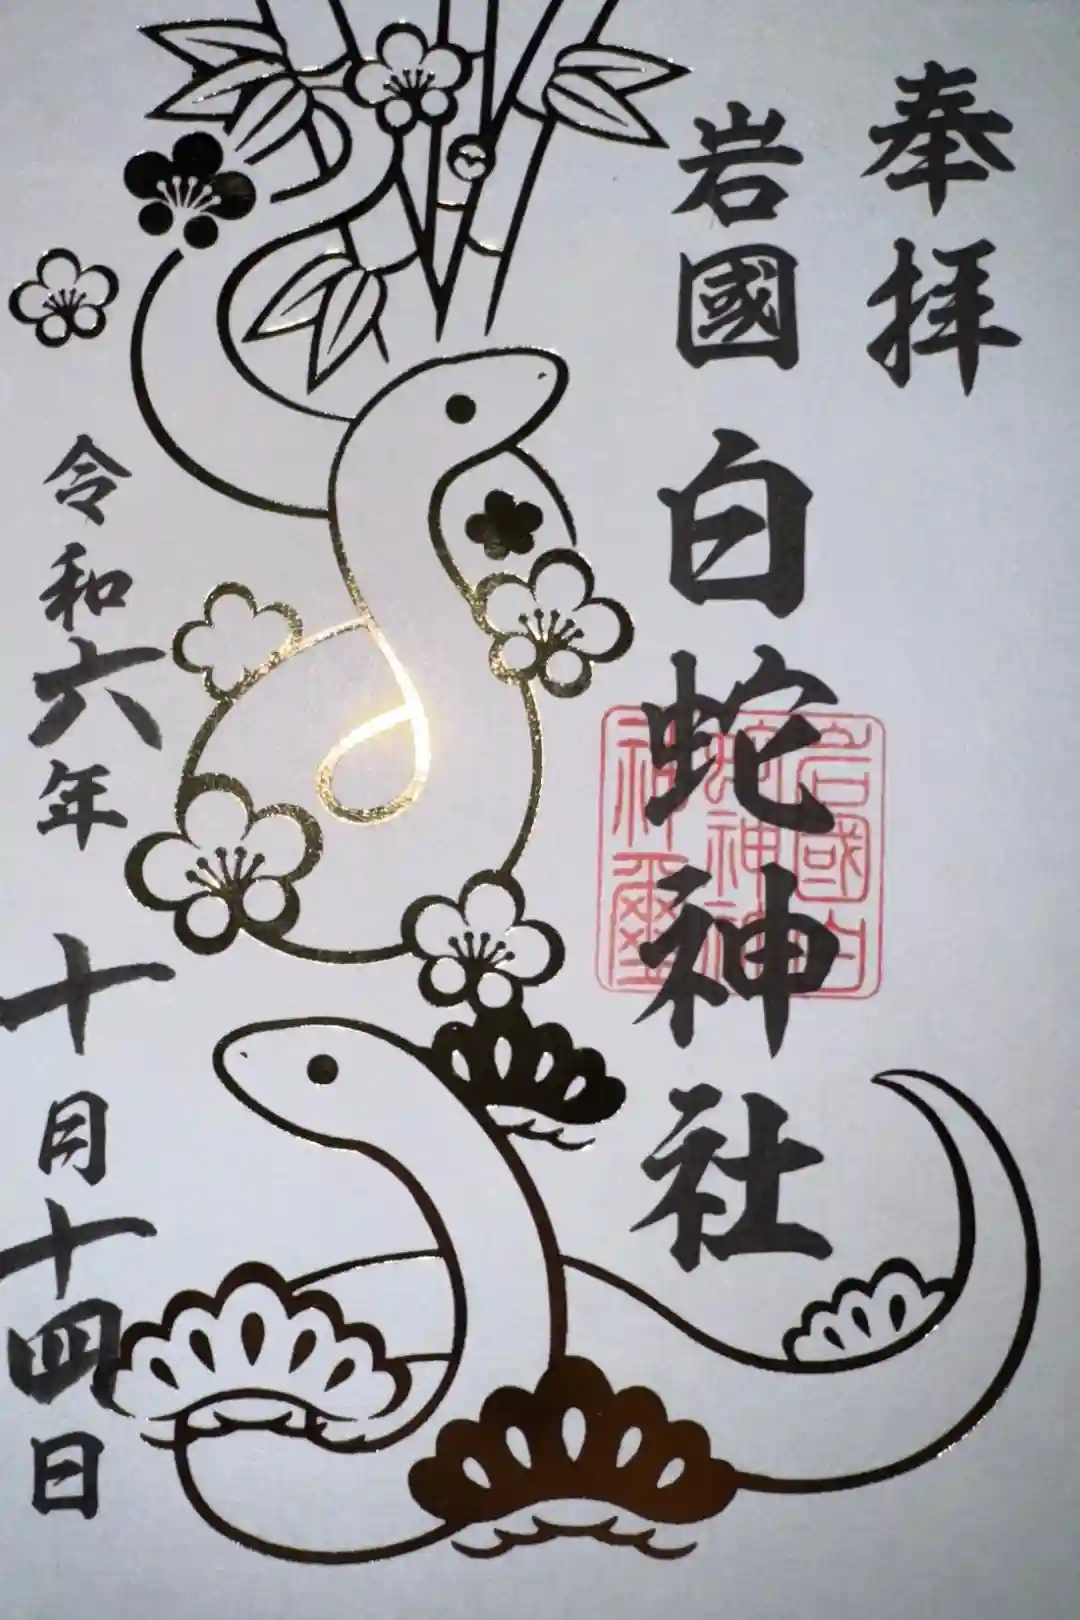 奉拝
岩國
白蛇神社
岩國白
蛇神社
神璽
令和六年十月十四日